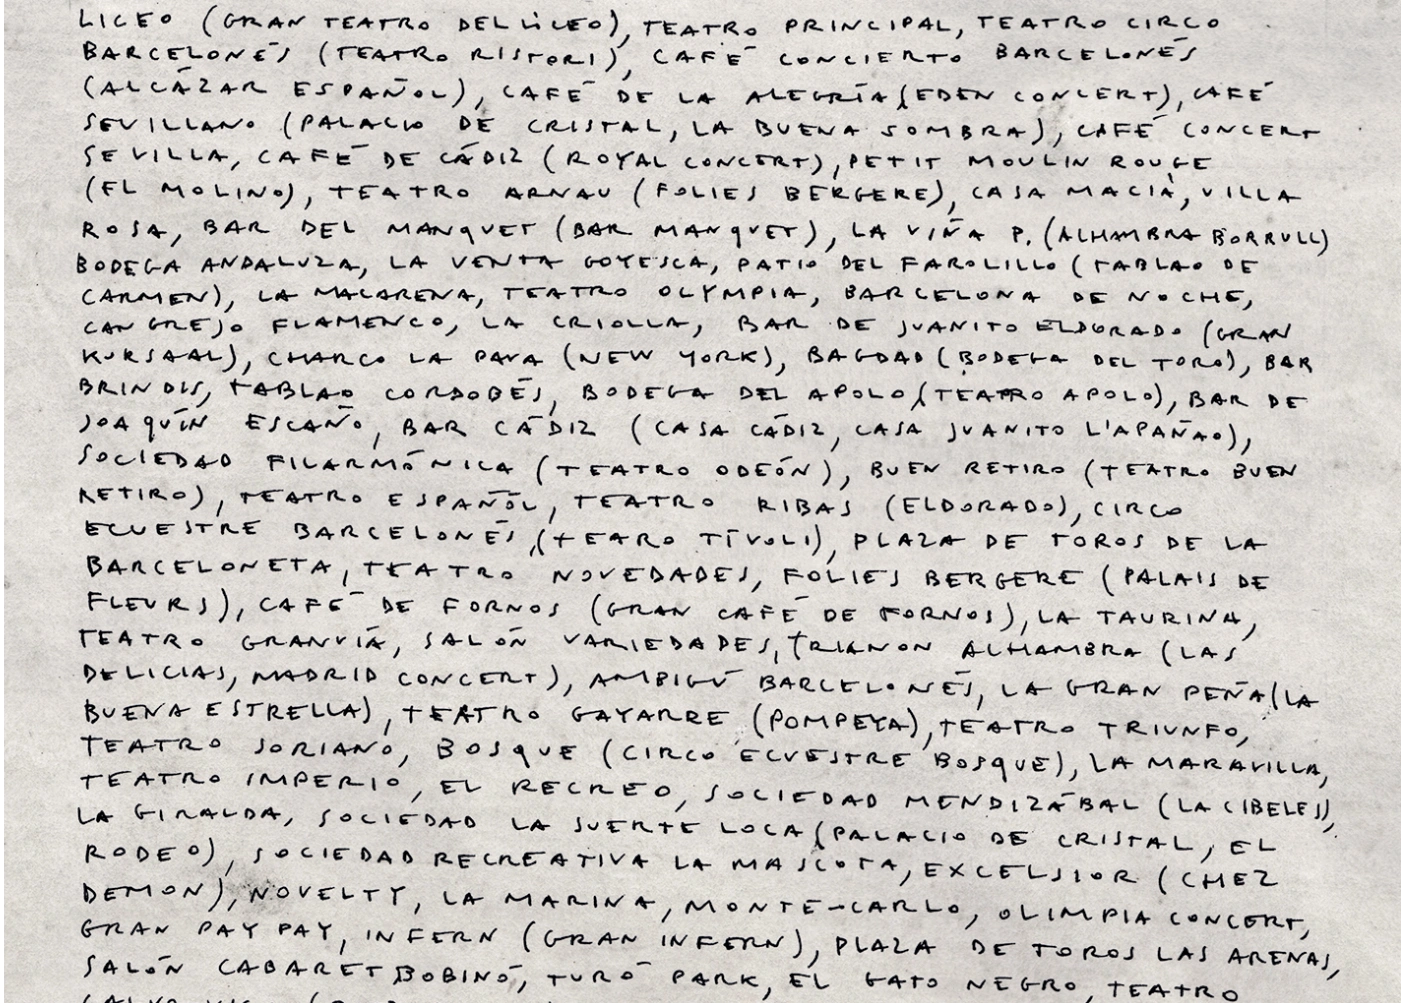 LICEO (GRAN TEATRO DEL LiCEO), TEATRO PRINCIPAL, TEATRO CIRCO
BARCELONÉS (TEATRO RISTORI), CAFÉ CONCIERTO BARCELONÉS
(ALCÁZAR ESPAÑOL), CAFÉ DE LA ALEGRÍA (EDEN CONCERT), CAFÉ
SEVILLANO (PALACIO DE CRISTAL, LA BUENA SOMBRA), CAFÉ CONCERT
SEVILLA, CAFÉ DE CÁDIZ (ROYAL CONCERT), PETIT MOULIN ROUGE
(EL MOLINO), TEATRO ARNAU (FOLIES BERGERE), CASA MACIÀ, VILLA
ROSA, BAR DEL MANQUET (BAR MANQUET), LA VIÑA P. (ALHAMBRA BORRULL)
BODEGA ANDALUZA, LA VENTA GOYESCA, PATIO DEL FAROLILLO (TABLAO DE
CARMEN), LA MACARENA, TEATRO OLYMPIA, BARCELONA DE NOCHE,
CANGREJO FLAMENCO, LA CRIOLLA, BAR DE JUANITO ELDORADO (GRAN
KURSAAL), CHARCO LA PAVA (NEW YORK), BAGDAD (BODEGA DEL TORO), BAR
BRINDIS, TABLAO CORDOBÉS, BODEGA DEL APOLO (TEATRO APOLO), BAR DE
JOAQUÍN ESCAÑO, BAR CÁDIZ (CASA CÁDIZ, CASA JUANITO L'APAÑAO),
SOCIEDAD FILARMÓNICA (TEATRO ODEÓN), BUEN RETIRO (TEATRO BUEN
RETIRO), TEATRO ESPAÑOL, TEATRO RIBAS (ELDORADO), CIRCO
ECUESTRE BARCELONÉS, (TEARO TÍVOLI), PLAZA DE TOROS DE LA
BARCELONETA, TEATRO NOVEDADES, FOLIES BERGERE (PALAIS DE
FLEURS), CAFÉ DE FORNOS (GRAN CAFÉ DE FORNOS), LA TAURINA,
TEATRO GRANVÍA, SALÓN VARIEDADES, TRIANON ALHAMBRA (LAS
DELICIAS, MADRID CONCERT), AMBIGÚ BARCELONÉS, LA GRAN PEÑA (LA
BUENA ESTRELLA), TEATRO GAYARRE (POMPEYA), TEATRO TRIUNFO,
TEATRO SORIANO, BOSQUE (CIRCO ECUESTRE BOSQUE), LA MARAVILLA,
TEATRO IMPERIO, EL RECREO, SOCIEDAD MENDIZÁBAL (LA CIBELES),
LA GIRALDA, SOCIEDAD LA SUERTE LOCA (PALACIO DE CRISTAL, EL
RODEO), SOCIEDAD RECREATIVA LA MASCOTA, EXCELSIOR (CHEZ
DEMON), NOVELTY, LA MARINA, MONTE-CARLO, OLIMPIA CONCERT,
GRAN PAY PAY, INFERN (GRAN INFERN), PLAZA DE TOROS LAS ARENAS,
SALÓN CABARET BOBINÓ, TURÓ PARK, EL GATO NEGRO, TEATRO